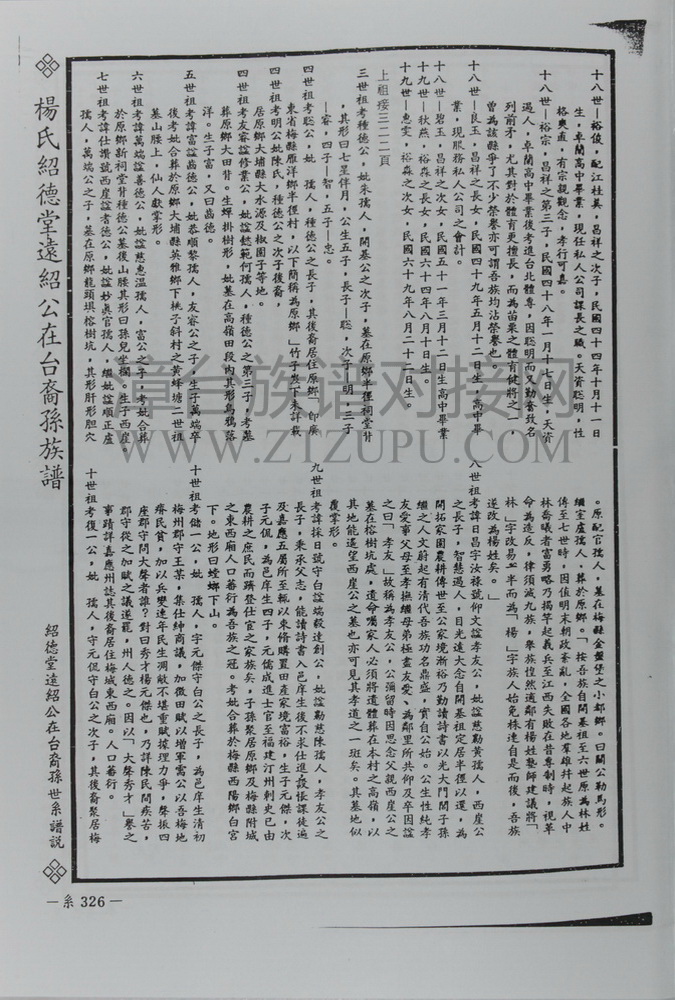 楊氏紹德堂遠紹公在台裔孫族譜
十八世—裕俊,配江桂英,昌祥之次子,民國四十四年十月十一日
生,卓蘭高中畢業,現任私人公司課長之職。天資聰明,性
格爽直,有宗親觀念,孝行可嘉。
十八世—裕宗,昌祥之第三子,民國四十八年一月十七日生,天資
過人,卓蘭高中畢業後考進台北體專,因聰明而又勤奮致名
列前矛,尤其對於體育更擅長,而為苗栗之體育健將之一,
曾為該縣爭了不少榮譽亦可謂吾族均沾榮譽也。
十八世—良玉,昌祥之長女,民國四十九年五月十二日生,高中畢
業,現服務私人公司之會計。
十八世—碧玉,昌祥之次女,民國五十一年三月十二日生高中畢業
十九世—秋燕,裕森之長女,民國六十四年八月十日生。
十九世—惠雯,裕森之次女,民國六十九年八月二十二日生。
上祖接三二二頁
三世祖考種德公,妣朱孺人,開基公之次子,墓在原鄉半徑祠堂背
,其形曰七星伴月,公生五子,長子—聪,次子—明,三子
—睿,四子—智,五子—忠。
四世祖考聪公,妣 孺人,種德公之長子,其後裔居住原鄉」即廣
東省梅縣雁洋鄉半徑村,以下簡稱為原鄉」竹子岃下未詳載
四世祖考明公妣陳氏,種德公之次子後裔,
居原鄉大埔縣大水源及椒園子等地。
四世祖考友睿諡修業公,妣諡懿範何孺人,種德公之第三子,考墓
葬原鄉大田背。生蟬掛樹形,妣墓在高嶺田段內其形烏鴉落
洋。生子富,又曰齒德。
五世祖考諱富諡齒德公,妣恭順黎孺人,友睿公之子,生子萬端卒
後考妣合葬於原鄉大埔縣英雅鄉下桃子斜村之黃蜂墩二世祖
墓山腰上,仙人獻掌形。
六世祖考諱萬端諡善德公,妣諡慈惠温孺人,富公之子,考妣合葬
於原鄉新祠堂背種德公墓後山腰其形曰孫兒坐欄。生子西崖。
七世祖考諱仕讚號西崖諡耆德公,妣諡妙眞官孺人,繼妣諡順正盧
孺人,萬端公之子,墓在原鄉龍頭埧榕樹坑,其形肝形胆穴
。原配官孺人,墓在梅縣金盤堡之小都鄉。曰關公勒馬形。
繼室盧孺人,葬於原鄉。「按吾族自開基祖至六世原為林姓
傳至七世時,因值明末朝政紊亂,全國各地羣雄幷起族人中
林喬曦者富勇略乃揭竿起義兵至江西失敗在昔專制時,視革
命為造反,律須滅九族,舉族惶然適鄰有楊姓塾師建議將「
林」字改易𠃓半而為「楊」字族人始免株連自是而後,吾族
逐改為楊姓矣。」
八世祖考諱日昌字汝祿號仰文諡孝友公,妣諡慈勤黃孺人,西崖公
之長子,智慧過人,目光遠大念自開基祖定居半徑以還,為
開拓家園農耕傳世至公家境漸裕乃勤讀詩書以光大門閭子孫
繼之人文蔚起有清代吾族功名鼎盛,實自公始。公生性純孝
友愛事父母至孝撫繼母弟極盡友愛、為鄰里所共仰及卒因諡
之曰「孝友」故稱為孝友公,公彌留時因思念父親西崖公之
墓在榕樹坑處,遺命囑家人必須將遺體葬在本村之高嶺,以
其地能遙望西崖公之墓也亦可見其孝道之一班矣。其墓地似
覆掌形。
九世祖考諱採日號守白諡端毅達創公,妣諡勤慈陳孺人,孝友公之
長子,秉承父志,能讀詩書入邑庠生後不求仕進設帳課徒遍
及嘉應五屬所至輒以束脩購置田產家境富裕,生子元傑,次
子元侃,為邑庠生四子,元儒成進士官至福建汀州刺史已由
農耕之庶民而躋登仕官之家族矣,子孫聚居原鄉及梅縣附城
之東西廂人口蕃衍為吾族之冠。考妣合葬於梅縣西陽鄉白宮
下。地形曰螳螂下山。
十世祖考儲一公,妣 孺人,字元傑守白公之長子,為邑庠生清初
梅州郡守王某,集仕紳商議,加徵田賦以增軍需公以吾梅地
瘠民貧,加以兵燹連年民生凋敝不堪重賦據理力爭,聲振四
座郡守問大聲者誰?對曰秀才楊元傑也,乃詳陳民間疾苦,
郡守從之加賦之議遂罷,州人德之。因以「大聲秀才」譽之
事蹟詳嘉應州誌其後裔居住梅城東西廂。人口蕃衍。
十世祖考復一公,妣 孺人,字元侃守白公之次子,其後裔聚居梅
紹德堂遠紹公在台裔孫世系譜說
—系 326—
章台族谱对接网
WWW.ZTZUPU.COM